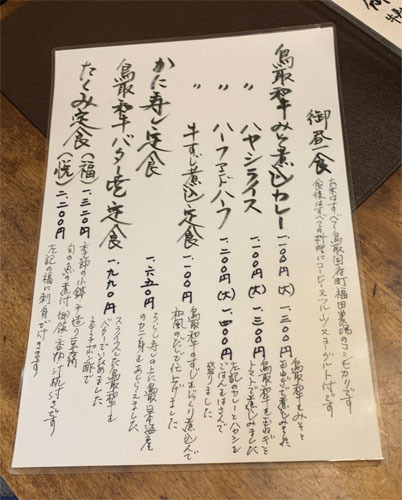 御昼食
お米はすべて鳥取国府町福田農場のコシヒカリです
食後はすべての料理にコーヒー、フルーツヨーグルト付です
鳥取和牛みそ煮込カレー 一、一〇〇円(大)一、三〇〇円
鳥取和牛をみそと
玉ねぎで煮込みました
〃 ハヤシライス 一、一〇〇円(大)一、三〇〇円
鳥取和牛を玉ねぎと
トマトで煮込みました
〃 ハーフアンドハーフ 一、二〇〇円(大)一、四〇〇円
左記のカレーとハヤシを
ごはんをはさんで
盛りました
〃 牛すじ煮込み定食 一、一〇〇円
鳥取和牛のすじをじっくり煮込んで
和風だしで仕上げました
かに寿し定食 一、六五〇円
ちらし寿しの上に鳥取日本海産
のカニ身をあしらえました
鳥取和牛バター焼定食 一、九九〇円
スライスした鳥取和牛を
バターでいためました
たくみ定食(福)一、三二〇円
季節の小鉢 手造り豆腐
旬の魚の煮付 御飯 香物 汁椀付きです
(悦)二、二〇〇円
左記の福に刺身が付きます